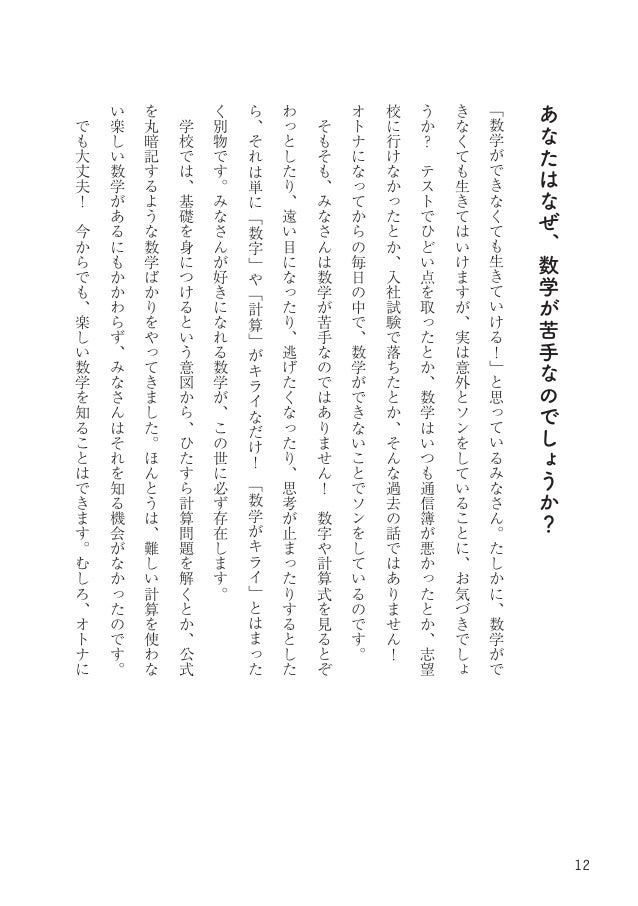 あなたはなぜ、数学が苦手なのでしょうか？
「数学ができなくても生きていける！」と思っているみなさん。たしかに、数学がで
きなくても生きてはいけますが、実は意外とソンをしていることに、お気づきでしょ
うか？　テストでひどい点を取ったとか、数学はいつも通信簿が悪かったとか、志望
校に行けなかったとか、入社試験で落ちたとか、そんな過去の話ではありません！
オトナになってからの毎日の中で、数学ができないことでソンをしているのです。
　そもそも、みなさんは数学が苦手なのではありません！　数字や計算式を見るとぞ
わっとしたり、遠い目になったり、逃げたくなったり、思考が止まったりするとした
ら、それは単に「数字」や「計算」がキライなだけ！　「数学がキライ」とはまった
く別物です。みなさんが好きになれる数学が、この世に必ず存在します。
　学校では、基礎を身につけるという意図から、ひたすら計算問題を解くとか、公式
を丸暗記するような数学ばかりをやってきました。ほんとうは、難しい計算を使わな
い楽しい数学があるにもかかわらず、みなさんはそれを知る機会がなかったのです。
　でも大丈夫！　今からでも、楽しい数学を知ることはできます。むしろ、オトナに
12